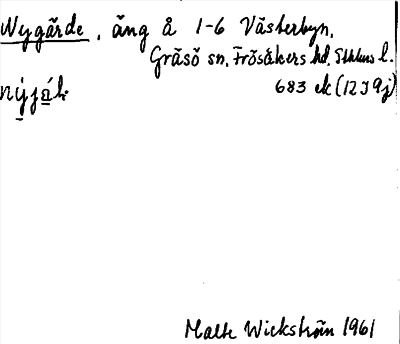 Nygärde, äng å 1-6 Västerbyn,
Gräsö sn. Frösåkers hd. Sthlms l.
683 ek (12J 9j)
Malte Wickström 1961